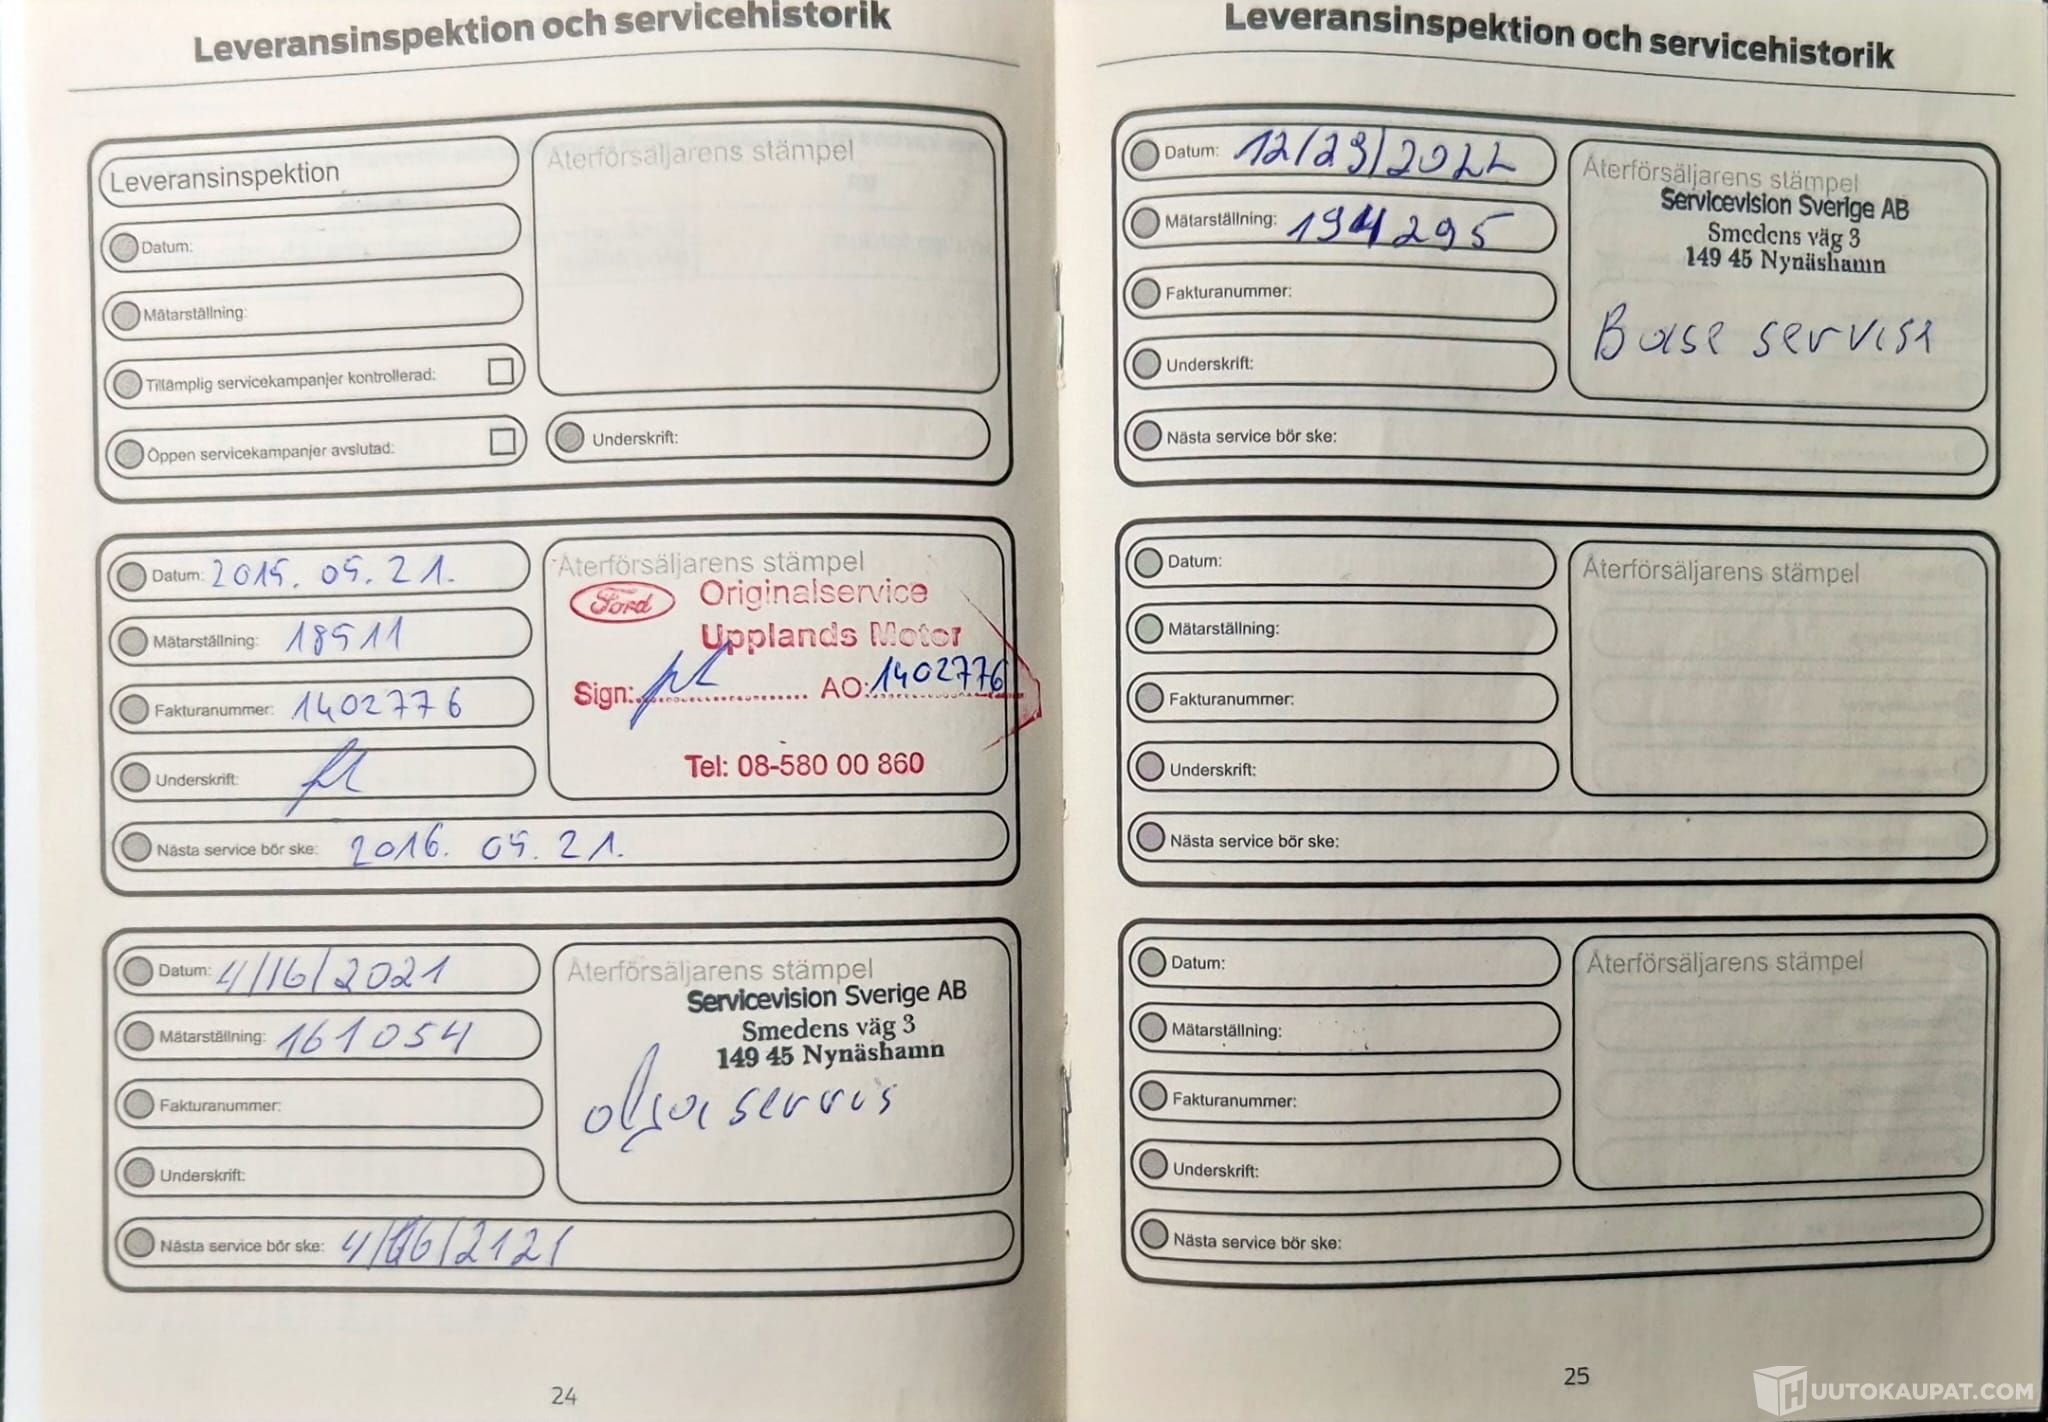 Leveransinspektion och servicehistorik
Leveransinspektion
Återförsäljarens stämpel
Datum:
Mätarställning:
Tillämplig servicekampanjer kontrollerad:
Öppen servicekampanjer avslutad:
Underskrift:
Datum: 2015. 05. 21.
Mätarställning: 18511
Fakturanummer: 1402776
Underskrift:
Återförsäljarens stämpel
Ford Originalservice
Upplands Motor
Sign: AO: 1402776
Tel: 08-580 00 860
Nästa service bör ske: 2016. 05. 21.
Datum: 4/16/2021
Mätarställning: 161054
Fakturanummer:
Underskrift:
Återförsäljarens stämpel
Servicevision Sverige AB
Smedens väg 3
149 45 Nynäshamn
servis
Nästa service bör ske: 4/16/2121
24
Leveransinspektion och servicehistorik
Datum: 12/23/2022
Mätarställning: 194295
Fakturanummer:
Underskrift:
Återförsäljarens stämpel
Servicevision Sverige AB
Smedens väg 3
149 45 Nynäshamn
Base servis
Nästa service bör ske:
Datum:
Mätarställning:
Fakturanummer:
Underskrift:
Återförsäljarens stämpel
Nästa service bör ske:
Datum:
Mätarställning:
Fakturanummer:
Underskrift:
Återförsäljarens stämpel
Nästa service bör ske:
25
HUUTOKAUPAT.COM